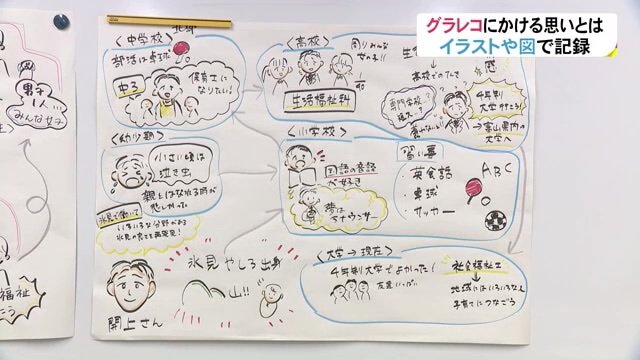 グラレコにかける思いとは
イラストや図で記録
〈中学校〉
部活は卓球
中3
保育士に
なりたい!
〈高校〉
周りみんな
女の子!!
生活福祉科
高校でのブレを
専門学校?
4年制
大学行こう!
→富山県内の
大学へ
男子
1人…
みんな女子
〈幼少期〉
小さい頃は
泣き虫
親とはなれる時が
悲しかった
〈小学校〉
国語の音読
が好き
夢は
アナウンサー
習い事
・英会話
・卓球
・サッカー
ABC
氷見で働いて
いろいろな分野がある
氷見の良さを再発見!
氷見 やしろ出身
山!!
開上さん
〈大学→現在〉
4年制大学でよかった!
友達いっぱい
社会福祉士
→地域にはいろいろな人
子育てにつなごう
福祉